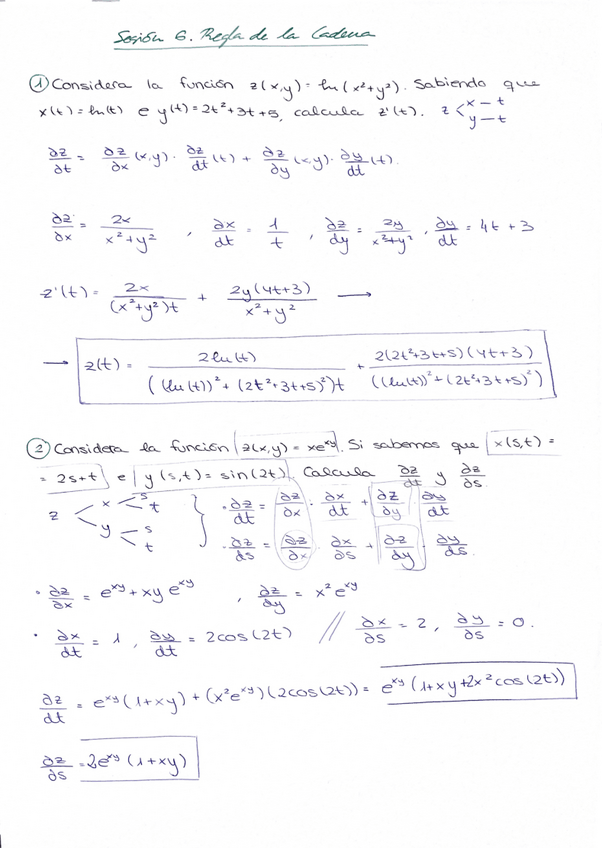 Sesión 6. Regla de la Cadena
① Considera la función z(x,y) = ln(x²+y²). Sabiendo que
x(t) = ln(t) e y(t) = 2t²+3t+5, calcula z'(t). z < x – t
y – t
∂z/∂t = ∂z/∂x (x,y) · ∂z/dt (t) + ∂z/∂y (x,y) · ∂y/dt (t).
∂z/∂x = 2x/(x²+y²) , ∂x/dt = 1/t , ∂z/dy = 2y/(x²+y²) , ∂y/dt = 4t + 3
z'(t) = 2x/((x²+y²)t) + 2y(4t+3)/(x²+y²) →
→ z(t) = 2ln(t)/(((ln(t))² + (2t²+3t+5)²)t) + 2(2t²+3t+5)(4t+3)/((ln(t))² + (2t²+3t+5)²)
② Considera la función z(x,y) = xe^xy. Si sabemos que x(s,t) =
= 2s+t e y(s,t) = sin(2t). Calcula ∂z/dt y ∂z/∂s.
z < x < s t
y < s t
· ∂z/dt = ∂z/∂x · ∂x/dt + ∂z/∂y · ∂y/dt
· ∂z/ds = ∂z/∂x · ∂x/∂s + ∂z/dy · ∂y/ds.
· ∂z/∂x = e^xy + xy e^xy , ∂z/dy = x² e^xy
· ∂x/dt = 1 , ∂y/dt = 2cos(2t) // ∂x/∂s = 2 , ∂y/∂s = 0.
∂z/dt = e^xy (1+xy) + (x²e^xy)(2cos(2t)) = e^xy (1+xy+2x² cos(2t))
∂z/∂s = 2e^xy (1+xy)